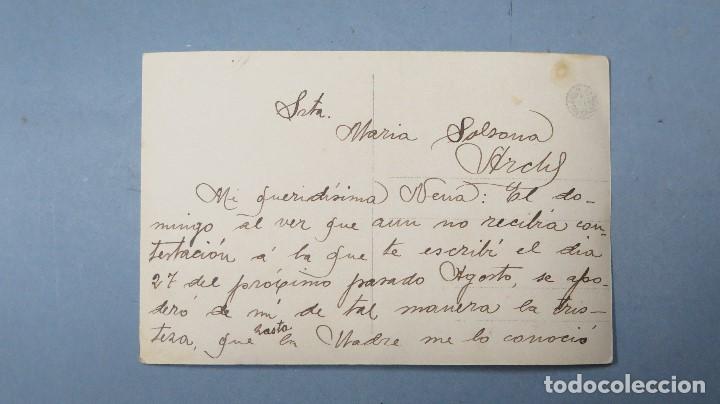 Srta.
Maria Solsona
Mi queridísima Nena: El do-
mingo al ver que aun no recibía con-
testación á la que te escribí el dia
27 del próximo pasado Agosto, se apo-
deró de mí de tal manera la tris-
teza, que hasta la Madre me lo conoció
todocoleccion.net